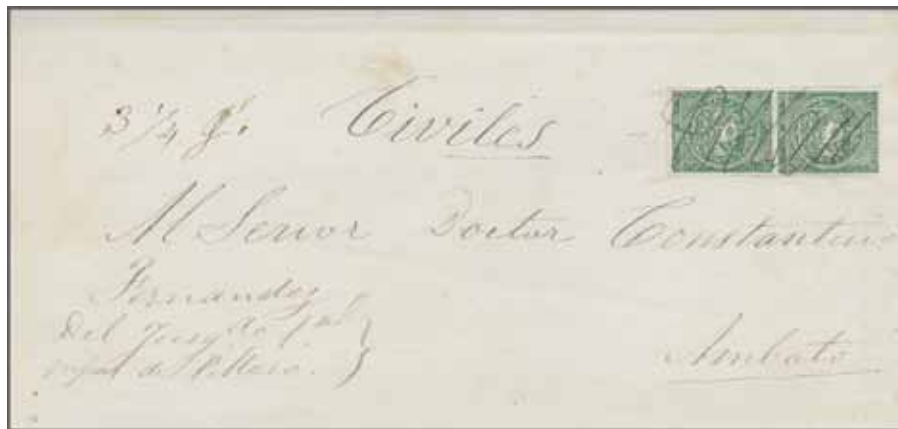 3 1/4 g. Civiles
Al Senor Doctor Constantino
Fernandez
Del Juzgdo
de Pillaro.
Ambato